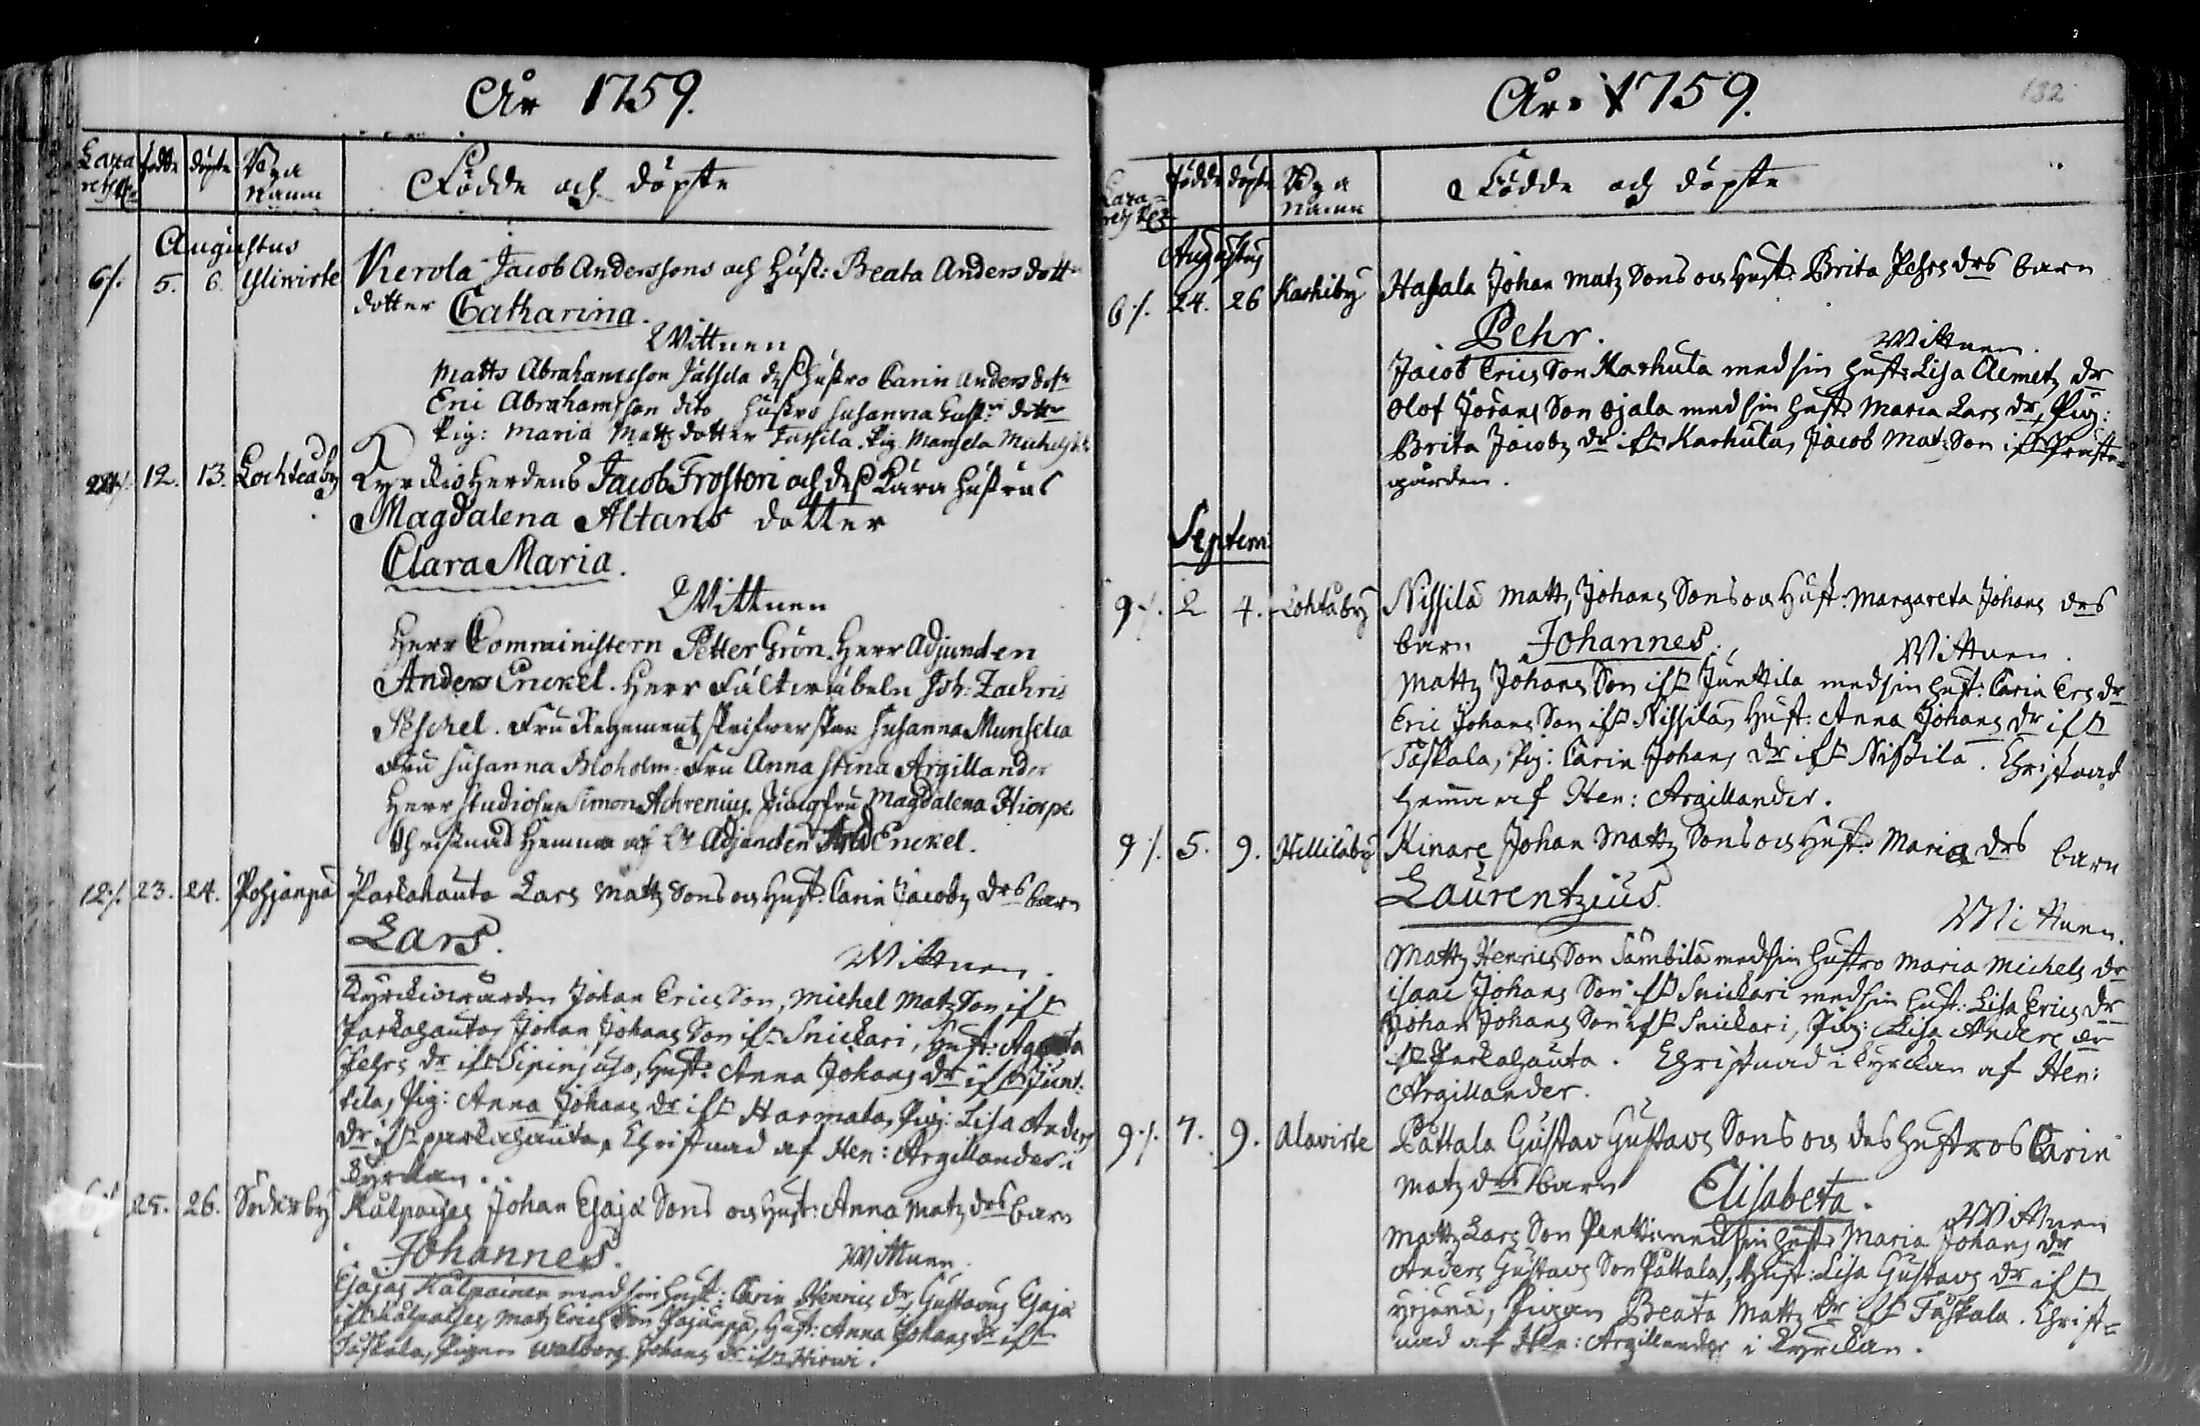 År 1759.
födde döpte Bya Namn
Födde och döpte
Augustus
6/. 5. 6. Yliwirte Kerola Jacob Anderssons och Hust: Beata Anders dottr
dotter Catharina.
Wittnen
Matts Abrahamsson Jutila dess hustro Carin Anders dotr
Eric Abrahamsson dito hustro Susanna dottr
Pig: Maria Matts dotter Pig. Margeta Michels
12. 13. Lochteaby KyrckioHerdens Jacob Frosteri och dess Kära hustrus
Magdalena Altans dotter
Clara Maria.
Wittnen
Herr Comministern Petter Grön. Herr Adjuncten
Anders Enckel. Herr Fältwäbeln Joh: Zachris
Peschel. Fru Regements skrifwerskan Susanna Munselia
Fru Susanna Bloholm. Fru Anna Stina Argillander
Herr Studiosus Simon Achrenius. Jungfru Magdalena Hiorpe
Christnad Hemma af Adjuncten And Enckel.
12/. 23. 24. Pohjanpä Parkahauta Lars Matts Sons och Hust: Carin Jacobs drs barn
Lars.
Wittnen.
Kyrckiowärden Johan Erics Son, Michel Mats Son ifr
Parkahauta, Johan Johans Son ifr Snickari, Hust: Agata
Pehrs dr ifr Sipinjuso, Hust: Anna Johans dr ifr Junt-
tila, Pig: Anna Johans dr ifr Harmala, Pig: Lisa Anders
dr ifr parkahauta, Christnad af Hen: Argillander i
Kyrckan.
6/ 25. 26. Söderby Kälpaises Johan Esaja Sons och Hust: Anna Mats drs barn
Johannes.
Wittnen.
Esajas Kälpainen med sin hust: Carin Henrics dr, Gustavus Esaja
ifr Kälpaises, Mats Erics Son Pojanpä, Hust: Anna Johans dr ifr
Taskala, Pigan Walborg Johans dr ifr Hirwi.
År 1759.
132
födde döpte Bya Namn
Födde och döpte
Augustus
6/. 24. 26 Karhiby Hassala Johan Mats Sons och Hust: Brita Pehrs drs barn
Pehr.
Wittnen.
Jacob Erics Son Karhula med sin hust: Lisa Clemets dr
Olof Görans Son Ojala med sin hust: Maria Lars dr, Pig:
Brita Jacobs dr ifr Karhula, Jacob Mats Son ifr Präste-
gården.
Septem:
9/. 2 4. Lohtäby Nissilä Matts Johans Sons och Hust: Margareta Johans drs
barn Johannes.
Wittnen.
Matts Johans Son ifr Junttila med sin hust: Carin Ers dr
Eric Johans Son ifr Nissilä, Hust: Anna Johans dr ifr
Taskala, Pig: Carin Johans dr ifr Nissilä. Christnad
hemma af Hen: Argillander.
9/. 5. 9. Hillilaby Kinare Johan Matts Sons och Hust: Maria drs barn
Laurentzius.
Wittnen.
Matts Henrics Son Sämbilä med sin Hustro Maria Michels dr
isaac Johans Son ifr Snickari med sin hust: Lisa Erics dr
Johan Johans Son ifr Snickari, Pig: Lisa Anders dr
ifr Parkahauta. Christnad i Kyrckan af Hen:
Argillander.
9/. 7. 9. Alavirte Pättala Gustav Gustavs Sons och des Hustros Carin
Mats drs barn Elisabeta.
Wittnen
Matts Lars Son Pentti med sin hust: Maria Johans dr
Anders Gustavs Son Pättala, Hust: Lisa Gustavs dr ifr
yrjänä, Pigan Beata Matts dr ifr Taskala. Christ-
nad af Hen: Argillander i Kyrckan.